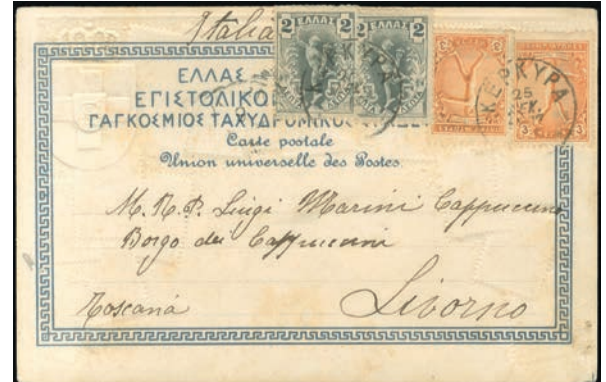 Italia
2 ΕΛΛΑΣ 2
2
3
3
ΚΕΡΚΥΡΑ
25
ΔΕΚ.
ΕΛΛΑΣ
ΕΠΙΣΤΟΛΙΚΟ
ΠΑΓΚΟΣΜΙΟΣ ΤΑΧΥΔΡΟΜΙΚΟΣ
Carte postale
Union universelle des Postes
M. R. P. Luigi Marini Cappuccino
Borgo dei Cappuccini
Toscana
Livorno